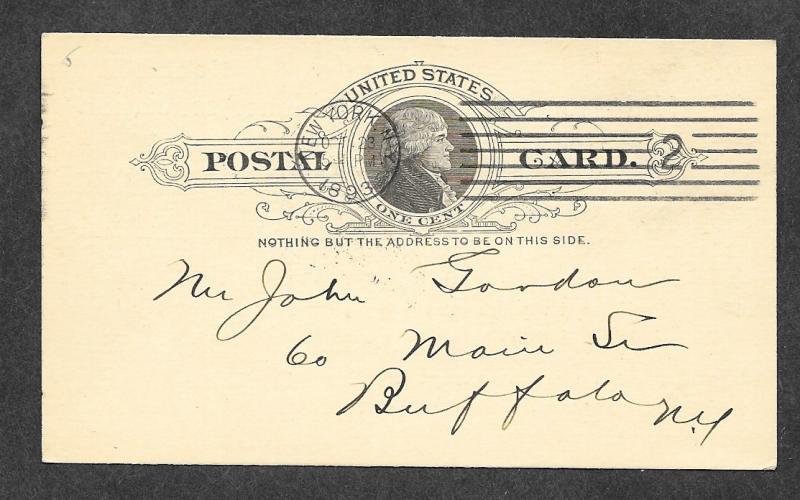 UNITED STATES
POSTAL CARD.
ONE CENT
NEW YORK N.Y.
1893
2
NOTHING BUT THE ADDRESS TO BE ON THIS SIDE.
Mr John Gordon
60 Main St
Buffalo NY